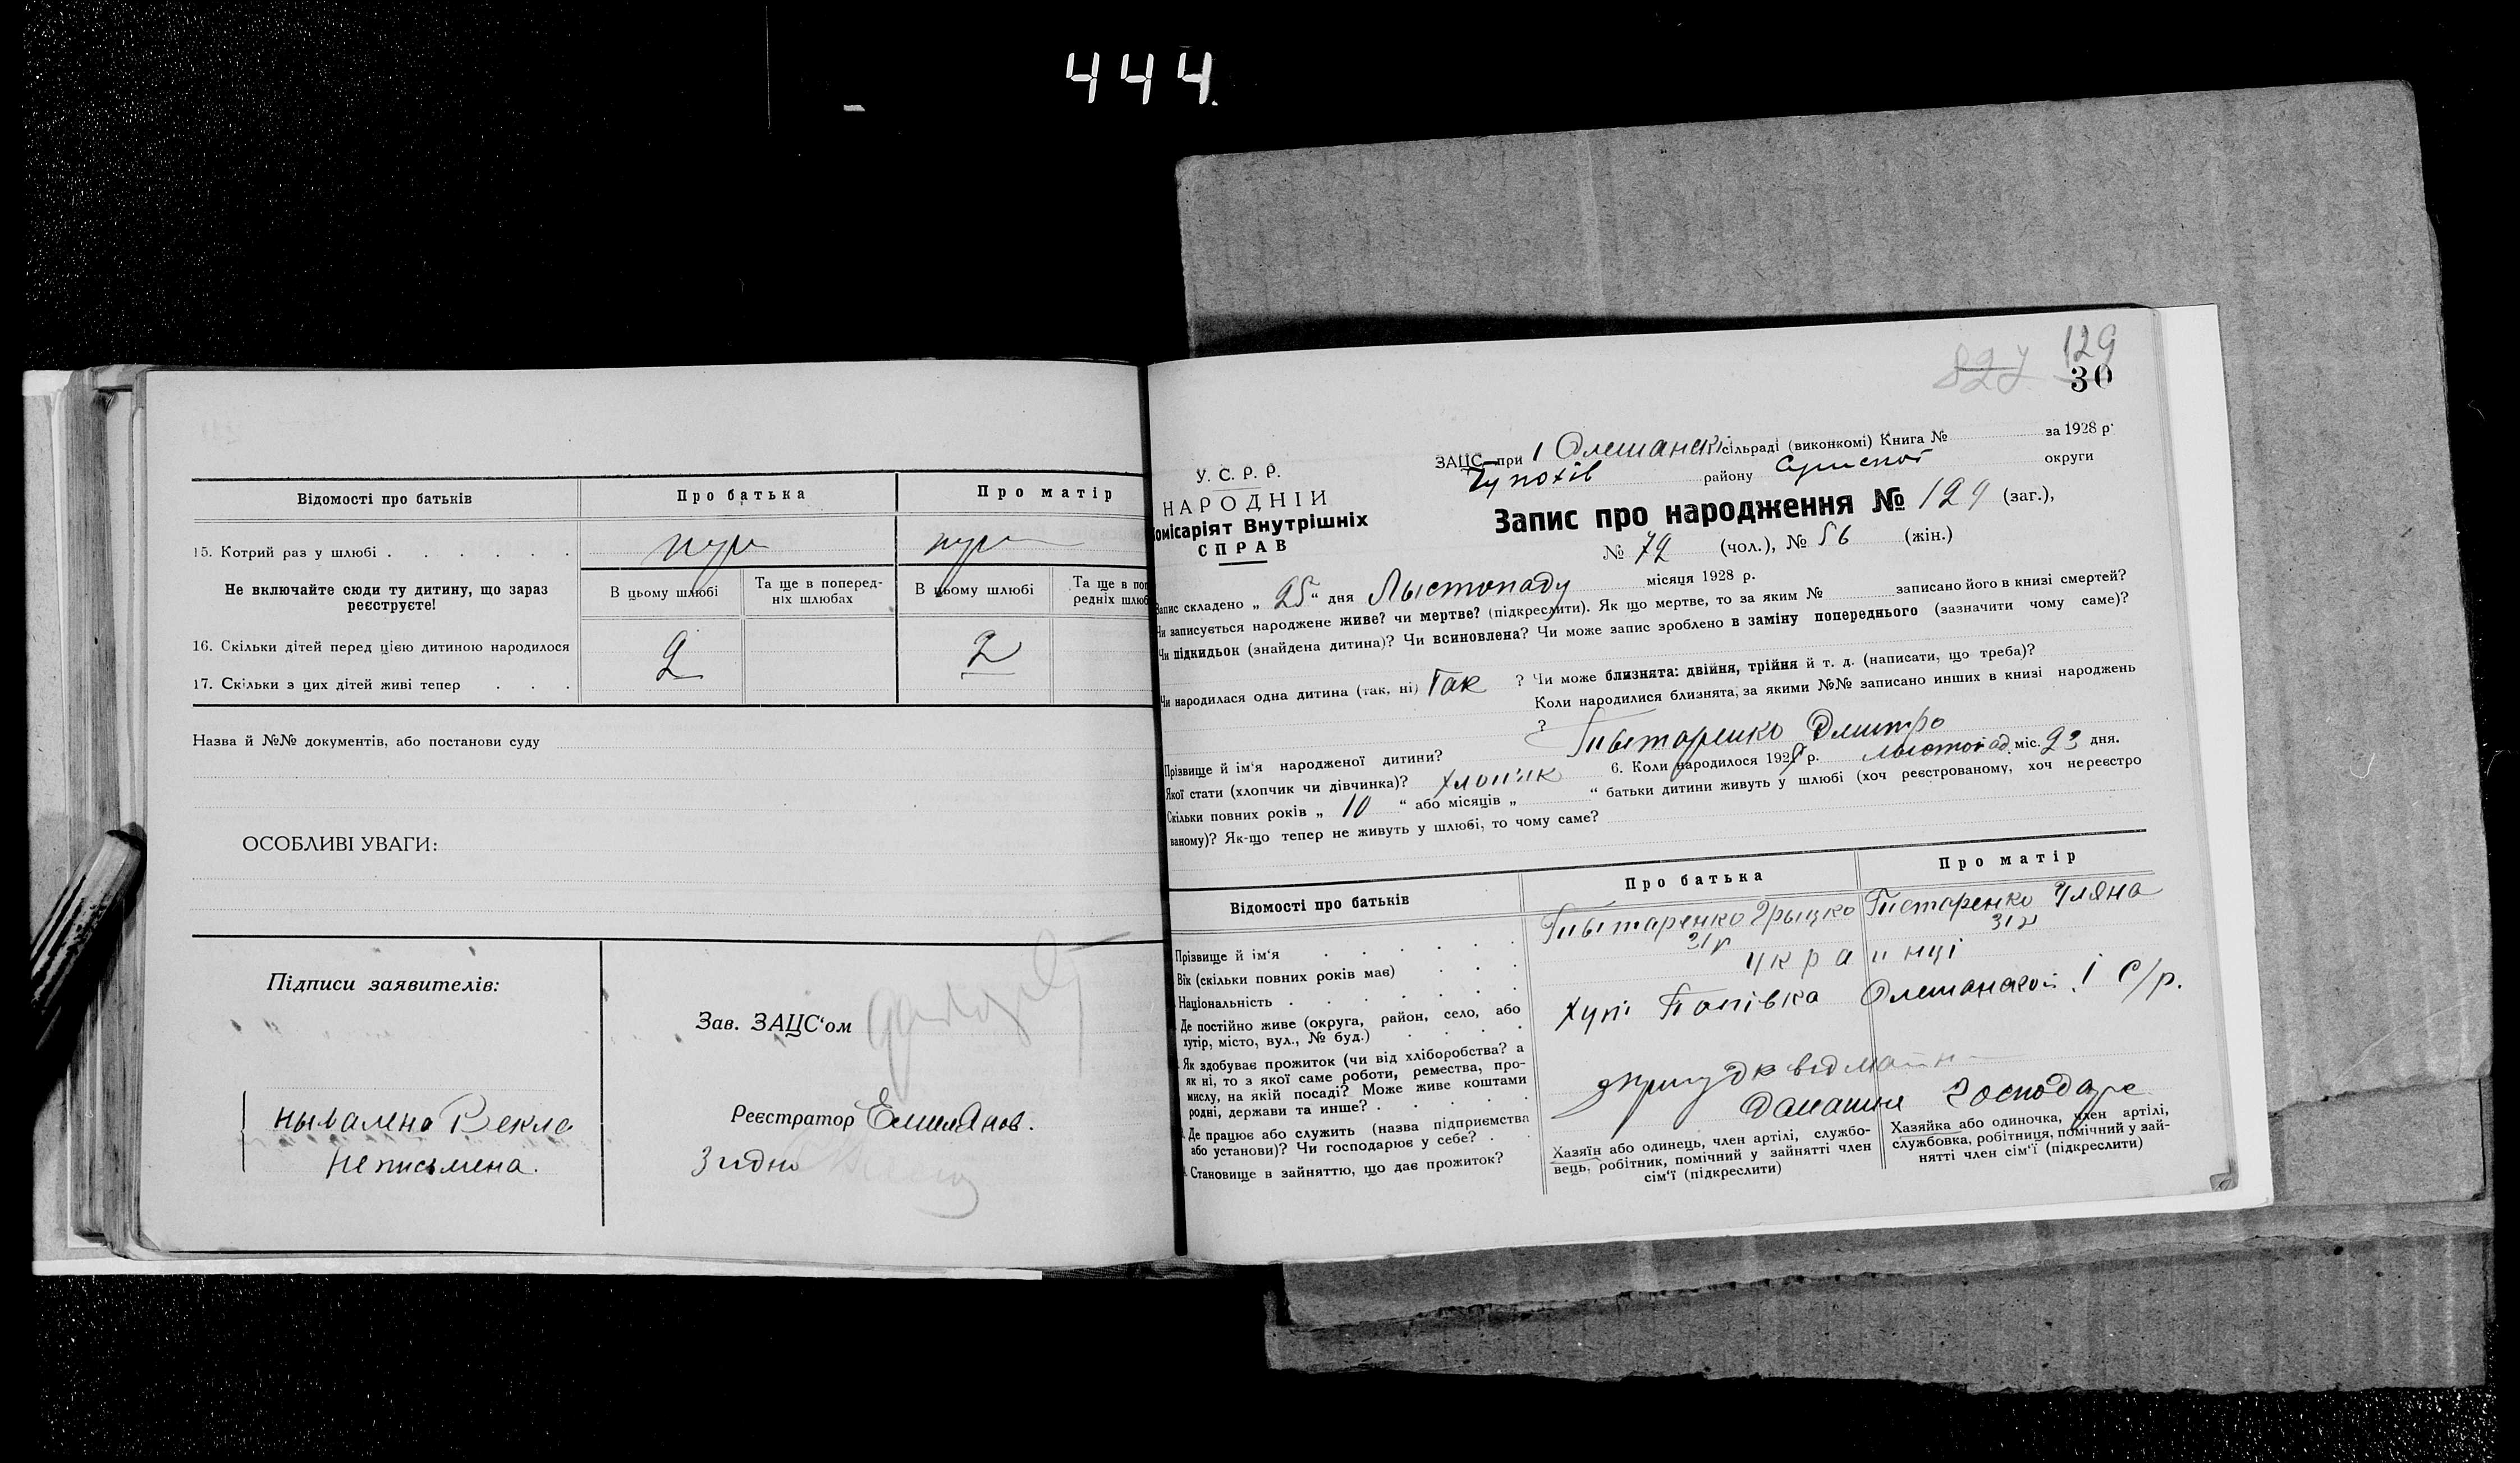 444.
Відомості про батьків
Про батька
Про матір
15. Котрий раз у шлюбі
Не включайте сюди ту дитину, що зараз реєструєте!
В цьому шлюбі
Та ще в поперед-
ніх шлюбах
В цьому шлюбі
Та ще в поп
редніх шлюб
16. Скільки дітей перед цією дитиною народилося
2
2
17. Скільки з цих дітей живі тепер
Назва й №№ документів, або постанови суду
ОСОБЛИВІ УВАГИ:
Підписи заявителів:
Зав. ЗАЦС'ом
Реєстратор Емилянов.
Згидно
Векла
Неписьмена.
827 129
30
У. С. Р. Р.
НАРОДНІЙ
омісаріят Внутрішніх
СПРАВ
ЗАЦС при 1 Олешанскі сільраді (виконкомі) Книга № за 1928 р.
Чупохів району Сумской округи
Запис про народження № 129 (заг.),
№ 72 (чол.), № 56 (жін.)
Запис складено „ 25 “ дня Лыстопаду місяця 1928 р.
Чи записується народжене живе? чи мертве? (підкреслити). Як що мертве, то за яким № записано його в книзі смертей?
Чи підкидьок (знайдена дитина)? Чи всиновлена? Чи може запис зроблено в заміну попереднього (зазначити чому саме)?
Чи народилася одна дитина (так, ні) Так ? Чи може близнята: двійня, трійня й т. д. (написати, що треба)?
Коли народилися близнята, за якими №№ записано инших в книзі народжень
?
Прізвище й ім'я народженої дитини? Дмитро
Якої стати (хлопчик чи дівчинка)? хлопчик 6. Коли народилося 1928 р. лыстопад міс. 23 дня.
Скільки повних років „ 10 “ або місяців „ “ батьки дитини живуть у шлюбі (хоч реєстрованому, хоч нереєстро
ваному)? Як-що тепер не живуть у шлюбі, то чому саме?
Відомості про батьків
Про батька
Про матір
Прізвище й ім'я
Грыцко
Уляна
Вік (скільки повних років має)
31г
31г
Національність
українці
Де постійно живе (округа, район, село, або
хутір, місто, вул., № буд.)
хут Попівка Олешанской 1 С/р.
Як здобуває прожиток (чи від хліборобства? а
як ні, то з якої саме роботи, ремества, про-
мислу, на якій посаді? Може живе коштами
родні, держави та инше?
Де працює або служить (назва підприємства
або установи)? Чи господарює у себе?
Становище в зайняттю, що дає прожиток?
Хазяїн або одинець, член артілі, службо-
вець, робітник, помічний у зайнятті член
сім'ї (підкреслити)
Хазяйка або одиночка, член артілі,
службовка, робітниця, помічний у зай-
нятті член сім'ї (підкреслити)